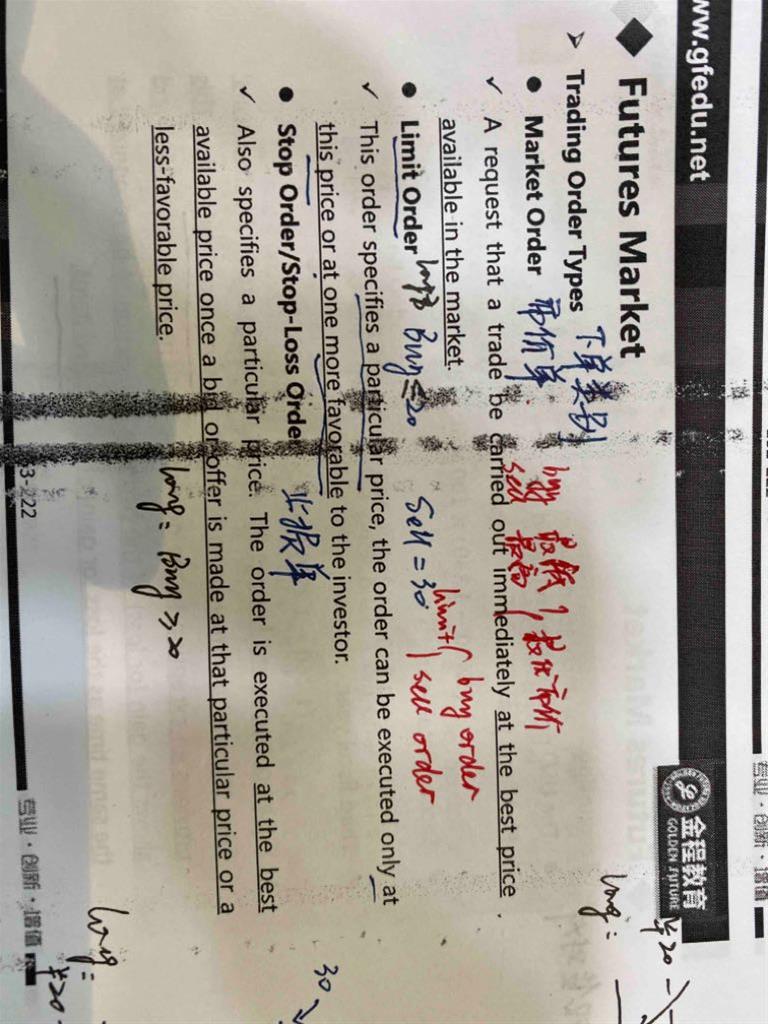 www.gfedu.net
金程教育
GOLDEN FUTURE
Futures Market
➢ Trading Order Types 下单类别
● Market Order 市价单
buy 最低
sell 最高
✓ A request that a trade be carried out immediately at the best price
available in the market.
limit buy order
sell order
● Limit Order long Buy ≤20 Sell = 30
✓ This order specifies a particular price, the order can be executed only at
this price or at one more favorable to the investor.
● Stop Order/Stop-Loss Order 止损单
✓ Also specifies a particular price. The order is executed at the best
available price once a bid or offer is made at that particular price or a
less-favorable price.
long: Buy ≥20
3-222
专业·创新·增值
long:
¥20
30
long:
¥20
专业·创新·增值